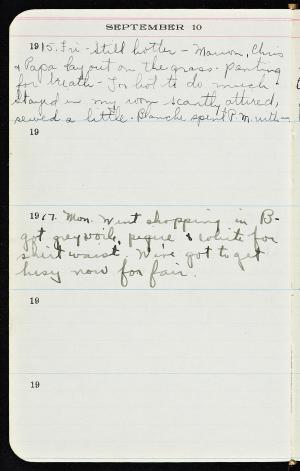 SEPTEMBER 10
1915. Fri - Still hotter - Marion, Chris
& Papa lay out on the grass - panting
for breath - Too hot to do much -
Stayed in my room scantly attired,
sewed a little. Blanche spent P.M. with
19
1917. Mon. Went shopping in B-
got grey voile, pique & white for
shirt waist. We've got to get
busy now for fair.
19
19